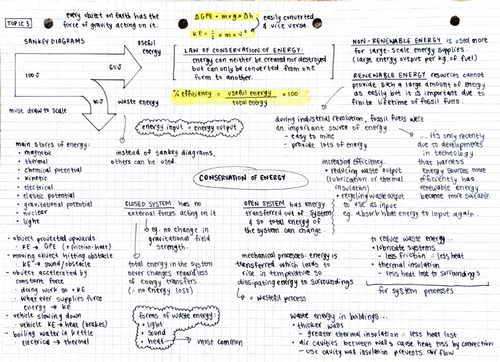 TOPIC 3
every object on Earth has the
force of gravity acting on it.
ΔGPE = m × g × Δh
KE = 1/2 × m × v²
easily converted
& vice versa.
SANKEY DIAGRAMS
useful
energy
100J
60J
40J
waste energy
must draw to scale
LAW OF CONSERVATION OF ENERGY:
energy can neither be created nor destroyed
but can only be converted from one
form to another.
% efficiency = useful energy × 100
total energy
energy input = energy output
instead of sankey diagrams,
others can be used.
NON-RENEWABLE ENERGY is used more
for large-scale energy supplies.
(large energy output per kg of fuel)
RENEWABLE ENERGY resources cannot
provide such a large amount of energy
as easily but it is important due to
finite lifetime of fossil fuels.
during industrial revolution, fossil fuels were
an important source of energy
- easy to mine
- provide lots of energy
... it's only recently
due to developments
in technology
that harness
energy sources more
efficiently has
renewable energy
become more available.
increasing efficiency...
• reducing waste output
(lubrication or thermal
insulation)
• recycling waste output
to use as input
eg. absorb heat energy to input again..
main stores of energy:
• magnetic
• thermal
• chemical potential
• kinetic
• electrical
• elastic potential
• gravitational potential
• nuclear
• light
CONSERVATION OF ENERGY
CLOSED SYSTEM has no
external forces acting on it
eg. no change in
gravitational field
strength.
total energy in the system
never changes regardless
of energy transfers.
(no energy lost)
OPEN SYSTEM has energy
transferred out of system
& so total energy of
the system can change.
mechanical processes: energy is
transferred which leads to
rise in temperature so
dissipating energy to surroundings
= wasteful process
• object projected upwards
KE → GPE (+friction = heat)
• moving object hitting obstacle
KE → sound/obstacle
• object accelerated by
constant force
- doing work so ↑ KE
- whatever supplies force
energy → KE
• vehicle slowing down
- vehicle KE → heat (brakes)
• boiling water in kettle
- electrical → thermal
forms of waste energy:
• light
• sound
• heat
most common
to reduce waste energy...
• lubricate systems
- less friction = less heat
• thermal insulation
- less heat lost to surroundings
for system processes
waste energy in buildings...
• thicker walls
- greater thermal insulation = less heat lost
• air cavities between walls cause heat loss by convection
- use cavity wall insulation prevents air flow